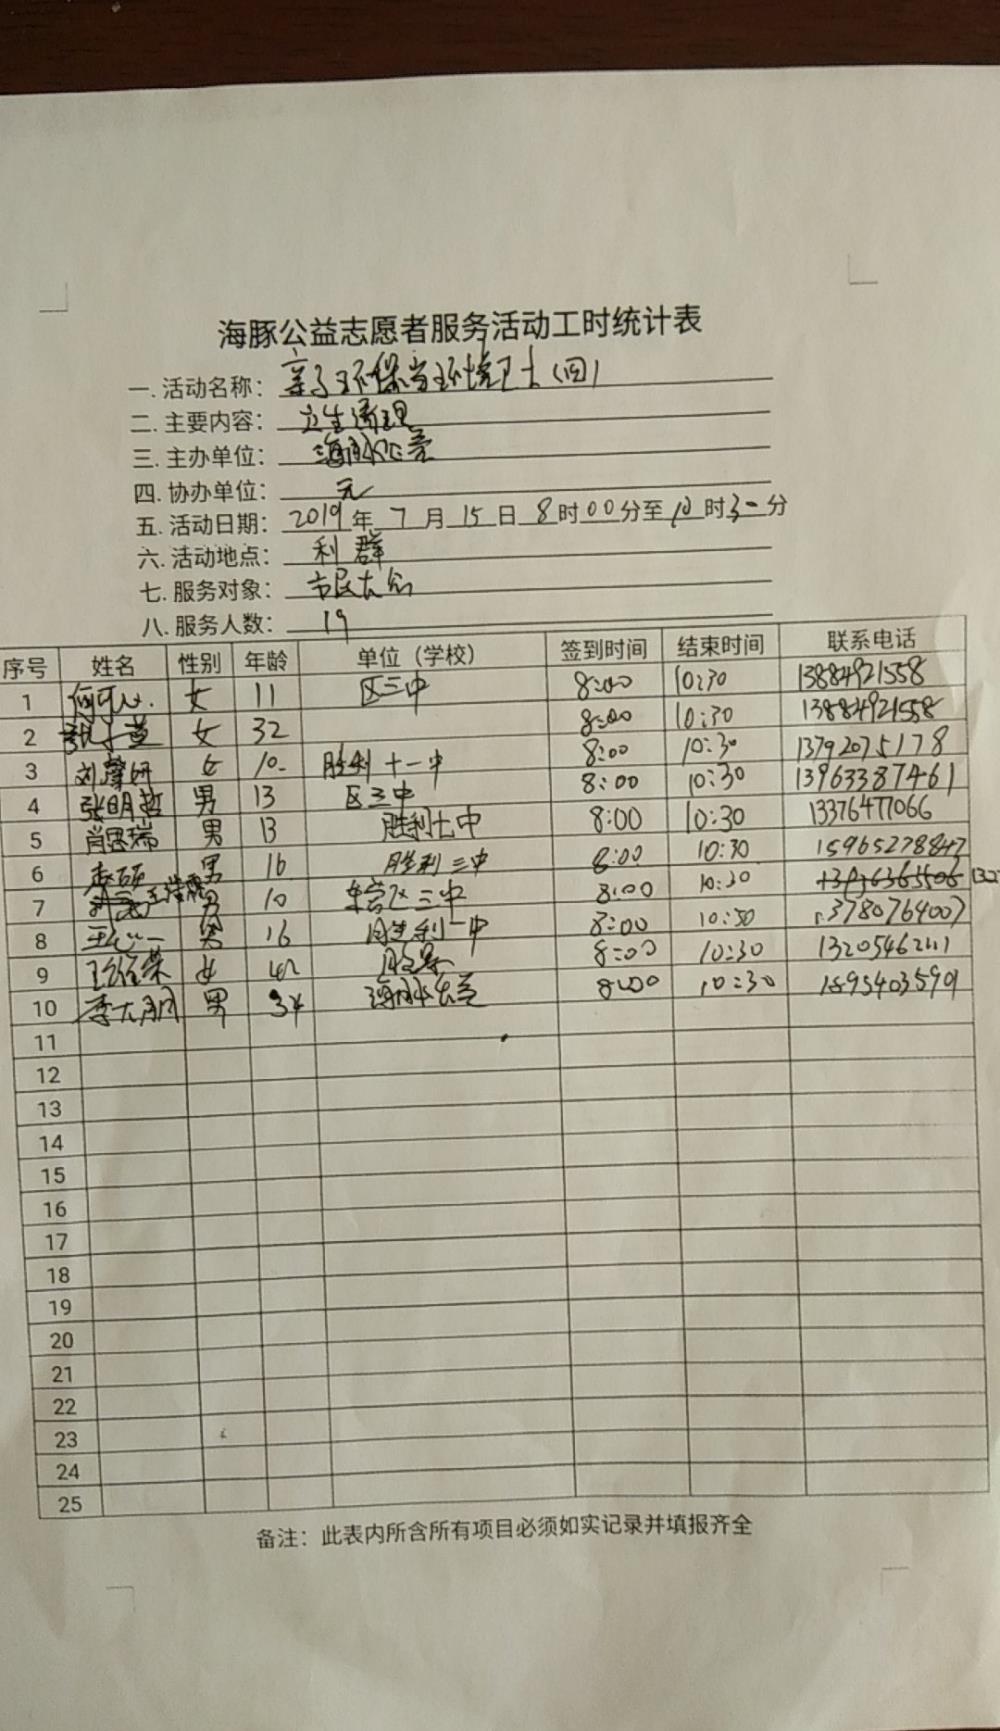 海豚公益志愿者服务活动工时统计表
一.活动名称：亲子环保当环境卫士（四）
二.主要内容：卫生清理
三.主办单位：海豚公益
四.协办单位：无
五.活动日期：2019年7月15日8时00分至10时30分
六.活动地点：利群
七.服务对象：市民大众
八.服务人数：19
序号 姓名 性别 年龄 单位（学校） 签到时间 结束时间 联系电话
1 何可心 女 11 区三中 8:00 10:30 13884921558
2 女 32 8:00 10:30 13884921558
3 刘馨妍 女 10 胜利十一中 8:00 10:30 13792075178
4 张明哲 男 13 区三中 8:00 10:30 13963387461
5 肖思瑞 男 13 胜利七中 8:00 10:30 13376477066
6 男 16 胜利三中 8:00 10:30 15965278847
7 男 10 东营区三中 8:00 10:30
8 王心一 男 16 胜利一中 8:00 10:30 13780764007
9 女 42 8:00 10:30 13205462111
10 李大朋 男 34 海豚公益 8:00 10:30 18954035901
11
12
13
14
15
16
17
18
19
20
21
22
23
24
25
备注：此表内所含所有项目必须如实记录并填报齐全